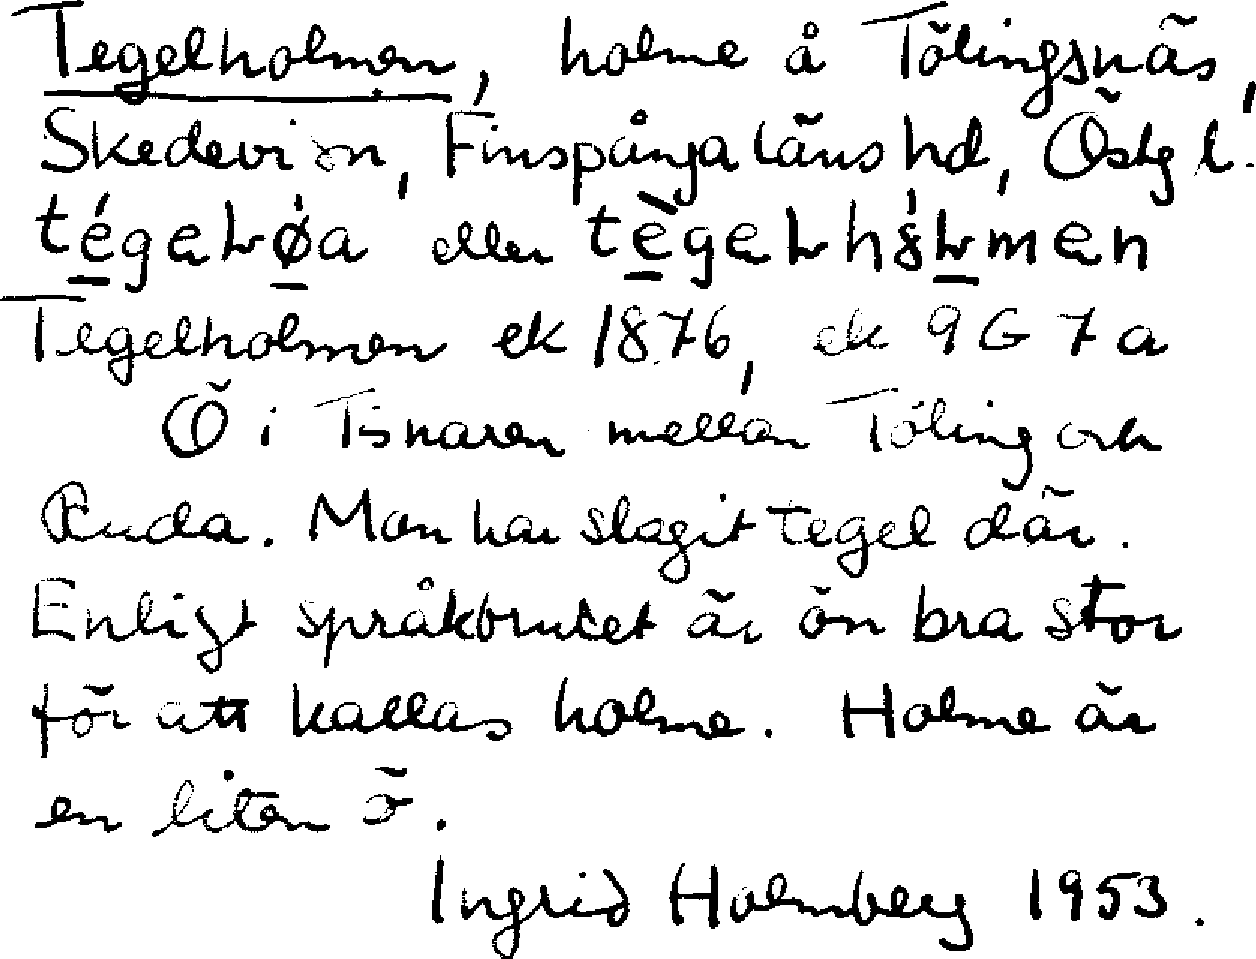 Tegelholmen, holme å Tölingsnäs,
Skedevi sn, Finspånga läns hd, Östg l.
tégeløa eller tègelhólmen
Tegelholmen ek 1876, ek 9 G 7 a
Ö i Tisnaren mellan Töling och
Ruda. Man har slagit tegel där.
Enligt språkbruket är ön bra stor
för att kallas holme. Holme är
en liten ö.
Ingrid Holmberg 1953.